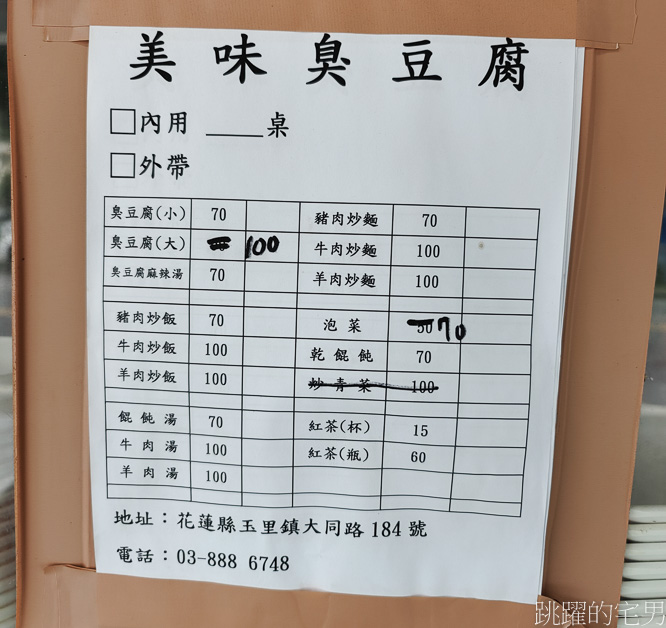 美味臭豆腐
□內用 ____桌
□外帶
臭豆腐(小) 70 豬肉炒麵 70
臭豆腐(大) 100 牛肉炒麵 100
臭豆腐麻辣湯 70 羊肉炒麵 100
豬肉炒飯 70 泡菜 50 70
牛肉炒飯 100 乾餛飩 70
羊肉炒飯 100 炒青菜 100
餛飩湯 70 紅茶(杯) 15
牛肉湯 100 紅茶(瓶) 60
羊肉湯 100
地址：花蓮縣玉里鎮大同路184號
電話：03-888 6748
跳躍的宅男